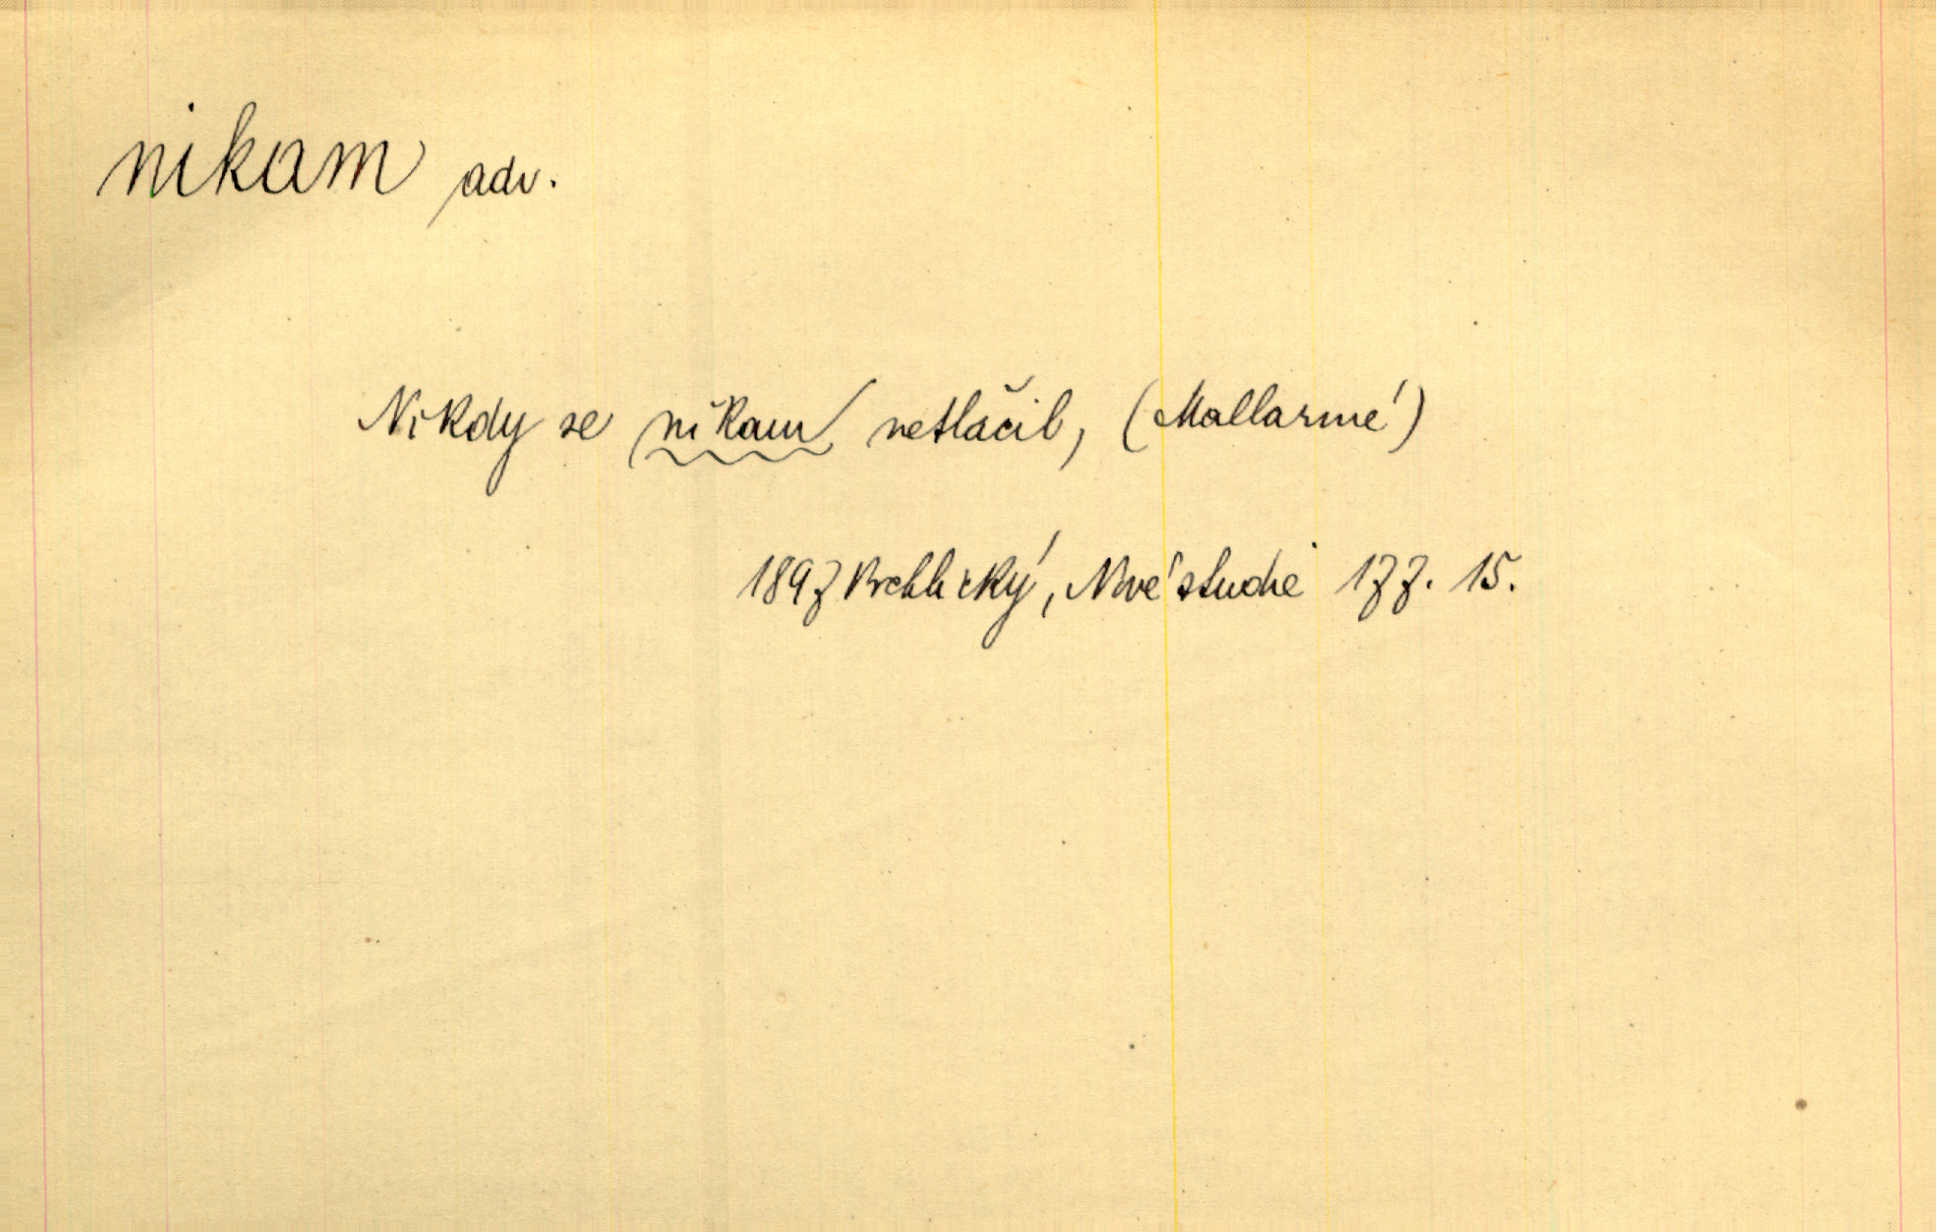 nikam adv.
Nikdy se nikam netlačil, (Mallarmé)
1897 Vrchlický, Nové studie 177. 15.